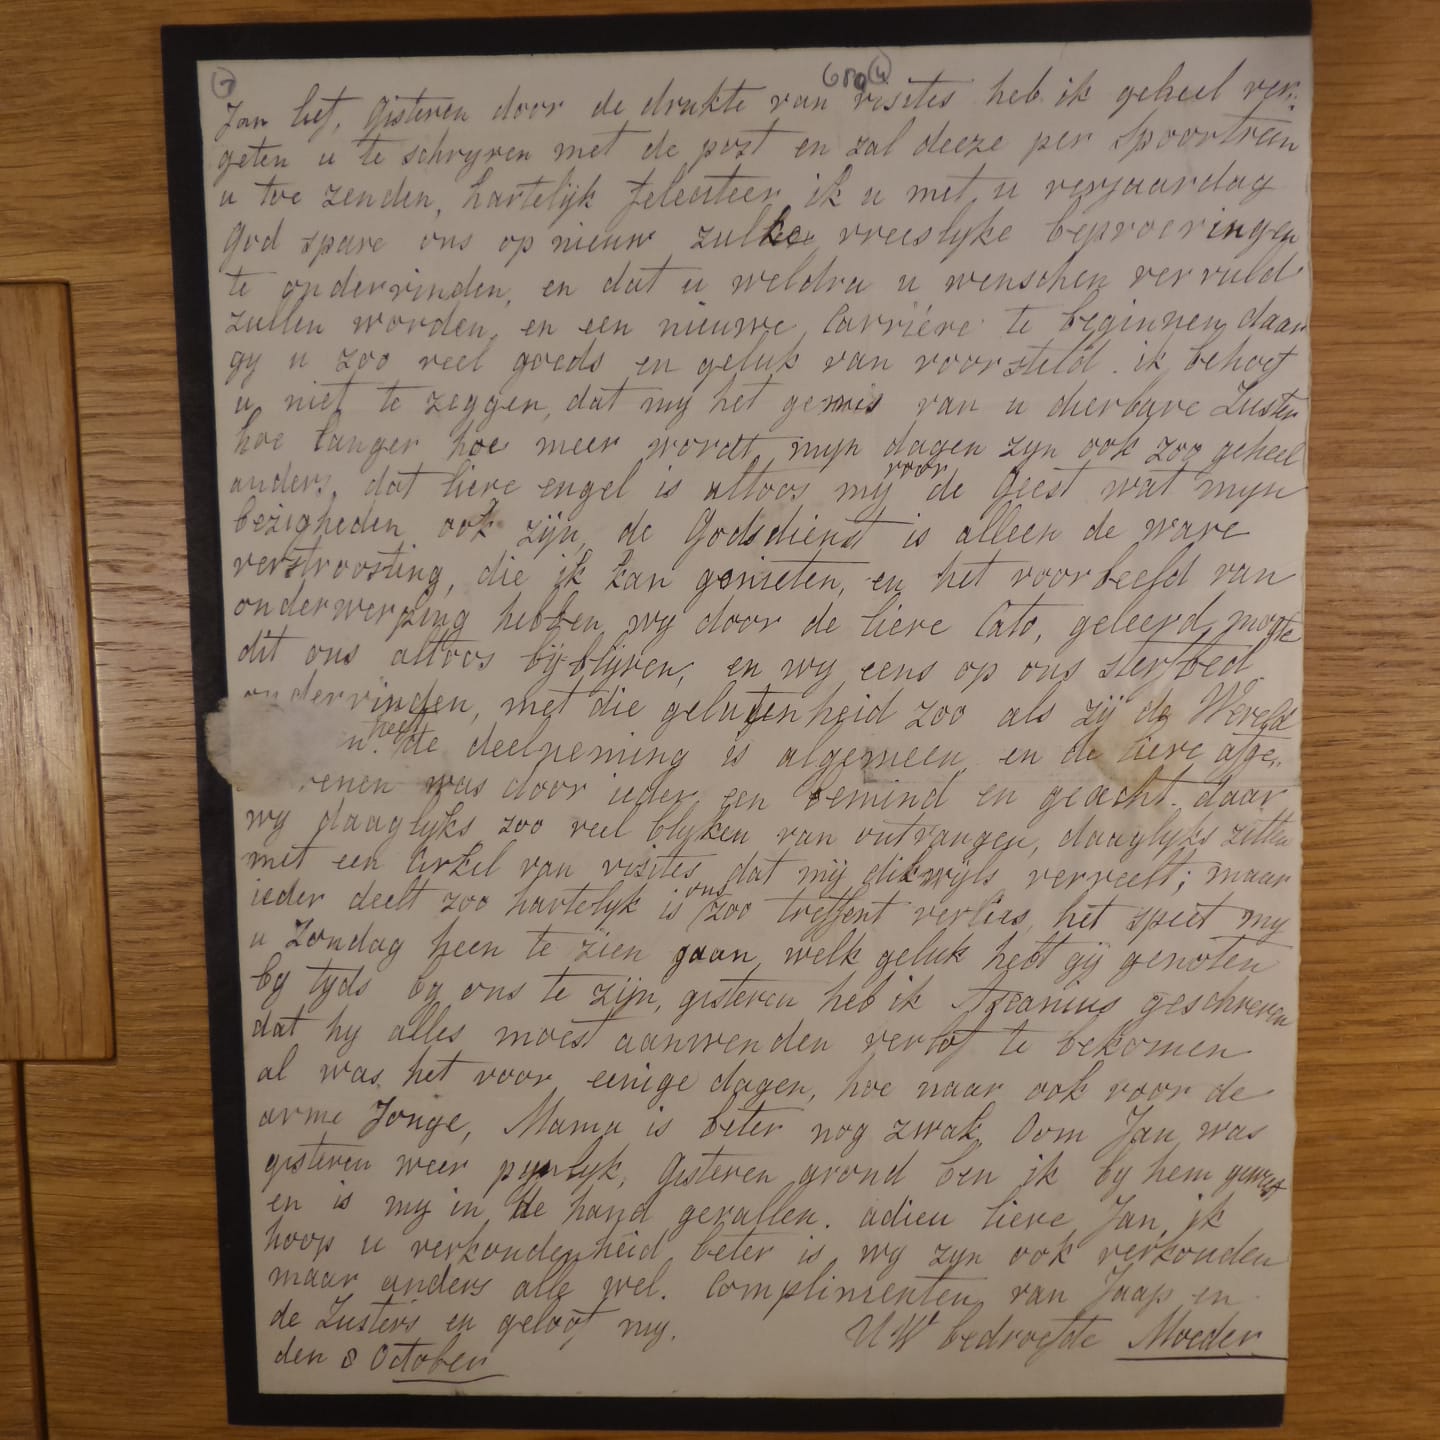 7 680 4
Jan lief, Gisteren door de drukte van visites heb ik geheel ver-
geten u te schryven met de post en zal deeze per Spoortrein
u toe zenden, hartelijk feleciteer ik u met u verjaardag
God spare ons op nieuw zulke vreeslyke beproevingen
te ondervinden, en dat u weldra u wenschen vervuld
zullen worden, en een nieuwe Carriére te beginnen, daar
gy u zoo veel goeds en geluk van voorsteld. ik behoef
u niet te zeggen, dat my het gemis van u dierbare Zuster
hoe langer hoe meer wordt, mijn dagen zyn ook zoo geheel
anders, dat lieve engel is altoos mij voor de Geest wat mijn
bezigheden ook zijn, de Godsdienst is alleen de ware
verstroosting, die ik kan genieten, en het voorbeeld van
onderwerping hebben wy door de lieve Cato, geleerd, mogte
dit ons altoos bij blijven, en wy eens op ons sterfbed
ondervinden, met die gelatenheid zoo als zij de Wereld
heeft de deelneming is algemeen en de lieve afge-
was door ieder een bemind en geacht. daar
wy daaglijks zoo veel blyken van ontvangen, daaglyks zitten
met een Cirkel van visites, dat mij dikwijls verveelt; maar
ieder deelt zoo hartelyk is ons zoo treffent verlies, het speet my
u Zondag heen te zien gaan, welk geluk hebt gij genoten
by tyds by ons te zijn, gisteren heb ik Ascanius geschreven
dat hy alles moest aanwenden verlof te bekomen
al was het voor eenige dagen, hoe naar ook voor de
arme Jonge, Mama is beter nog zwak, Oom Jan was
gisteren weer pynlyk, Gisteren avond ben ik by hem geweest
en is my in de hand gevallen. adieu lieve Jan, ik
hoop u verkoudenheid beter is, wy zyn ook verkouden
maar anders alle wel. Complimenten van Jaap en
de Zusters en geloof my.
UW bedroefde Moeder
den 8 October